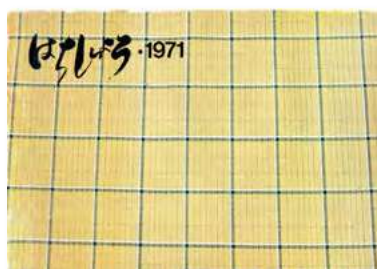 はちじょう・1971